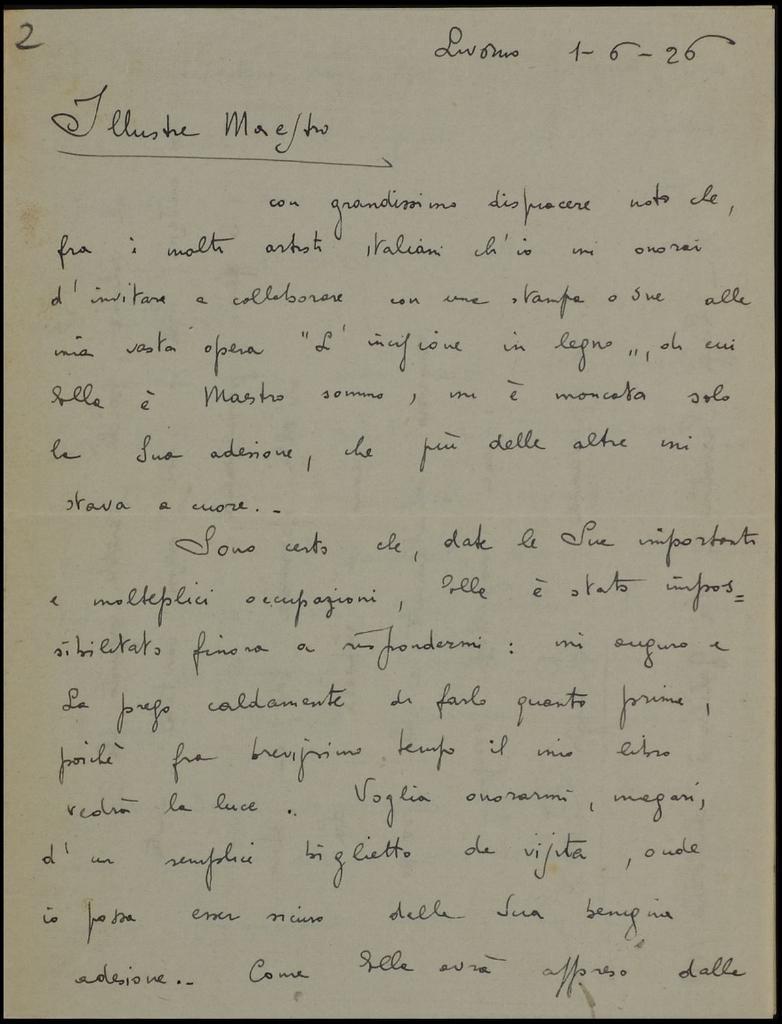 2
Livorno 1-6-26
Illustre Maestro
con grandissimo dispiacere noto che,
fra i molti artisti italiani ch'io mi onorai
d'invitare a collaborare con una stampa o due alla
mia vasta opera "L'incisione in legno", di cui
Ella è Maestro sommo, mi è mancata solo
la Sua adesione, che più delle altre mi
stava a cuore. -
Sono certo che, date le Sue importanti
e molteplici occupazioni, Ella è stato impos=
sibilitato finora a rispondermi: mi auguro e
La prego caldamente di farlo quanto prima,
poichè fra brevissimo tempo il mio libro
vedrà la luce.. Voglia onorarmi, magari,
d'un semplice biglietto da visita, onde
io possa esser sicuro della Sua benigna
adesione.. Come Ella avrà appreso dalla